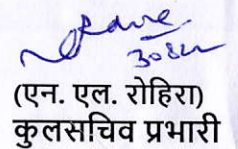 (एन. एल. रोहिरा)
कुलसचिव प्रभारी